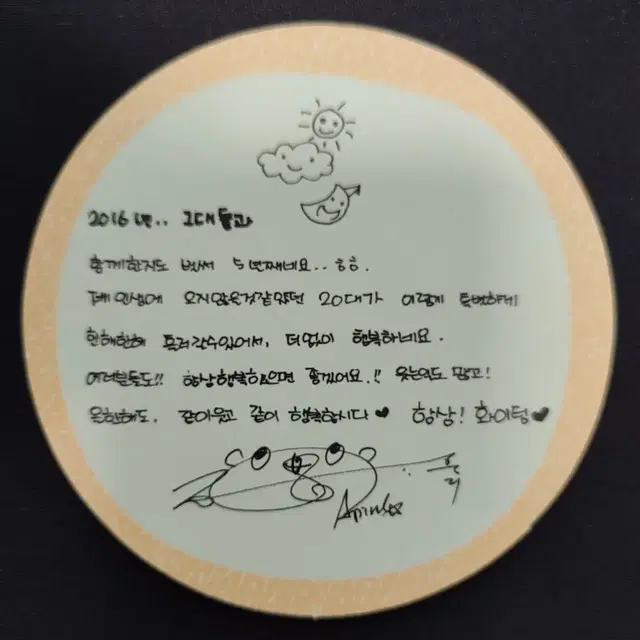 2016년.. 그대들과
함께한지도 벌써 5년째네요.. ㅎㅎ.
제 인생에 오지않을것같았던 20대가 이렇게 특별하게
한해한해 흘러갈수있어서, 더없이 행복하네요.
여러분들도!! 항상행복했으면 좋겠어요.!! 웃는일도 많고!
올한해도. 같이웃고 같이 행복합시다♥ 항상! 화이팅♥
Apink